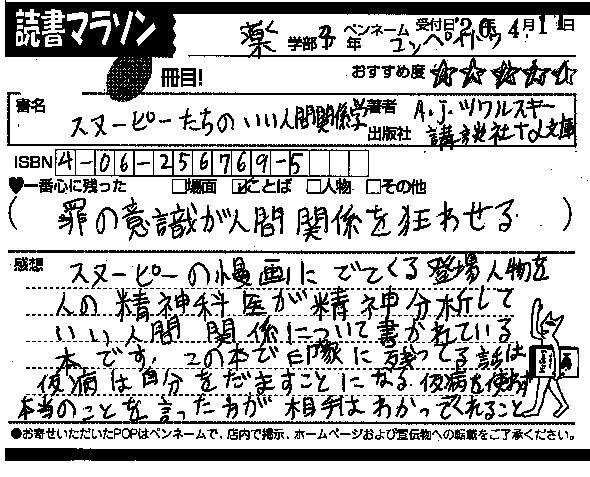 読書マラソン
薬学部 3年 ペンネーム コンペイトウ 受付日'26年4月11日
冊目! おすすめ度 ☆☆☆☆☆
書名 スヌーピーたちのいい人間関係学 著者 A.J.ツワルスキー
出版社 講談社+α文庫
ISBN 4-06-256769-5
♥一番心に残った □場面 ☑ことば □人物 □その他
(罪の意識が人間関係を狂わせる)
感想 スヌーピーの漫画にでてくる登場人物を
人の精神科医が精神分析して
いい人間関係について書かれている
本です。この本で印象に残ってる話は
仮病は自分をだますことになる 仮病を使わず
本当のことを言った方が相手はわかってくれること
●お寄せいただいたPOPはペンネームで、店内で掲示、ホームページおよび宣伝物への転載をご了承ください。